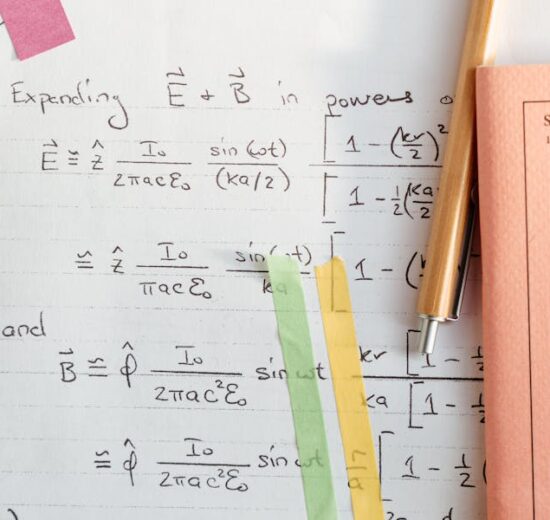 Expanding E⃗ + B⃗ in powers o
E⃗ ≅ ẑ I₀/(2πacε₀) sin(ωt)/(ka/2) [1 - (kr/2)²/[1 - ½(ka/2
≅ ẑ I₀/(πacε₀) sin(ωt)/ka [1 - (
and
B⃗ ≅ φ̂ I₀/(2πac²ε₀) sin ωt kr/ka [1 - ½/[1 - ½
≅ φ̂ I₀/(2πac²ε₀) sin ωt r/a [1 - ½(